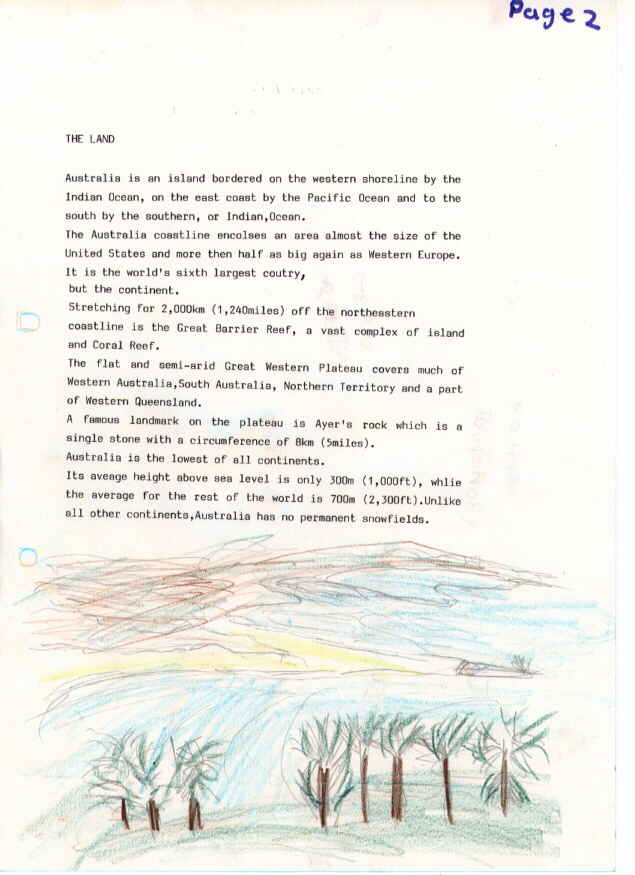 Page 2
THE LAND
Australia is an island bordered on the western shoreline by the
Indian Ocean, on the east coast by the Pacific Ocean and to the
south by the southern, or Indian,Ocean.
The Australia coastline encolses an area almost the size of the
United States and more then half as big again as Western Europe.
It is the world's sixth largest coutry,
but the continent.
Stretching for 2,000km (1,240miles) off the northeastern
coastline is the Great Barrier Reef, a vast complex of island
and Coral Reef.
The flat and semi-arid Great Western Plateau covers much of
Western Australia,South Australia, Northern Territory and a part
of Western Queensland.
A famous landmark on the plateau is Ayer's rock which is a
single stone with a circumference of 8km (5miles).
Australia is the lowest of all continents.
Its aveage height above sea level is only 300m (1,000ft), whlie
the average for the rest of the world is 700m (2,300ft).Unlike
all other continents,Australia has no permanent snowfields.